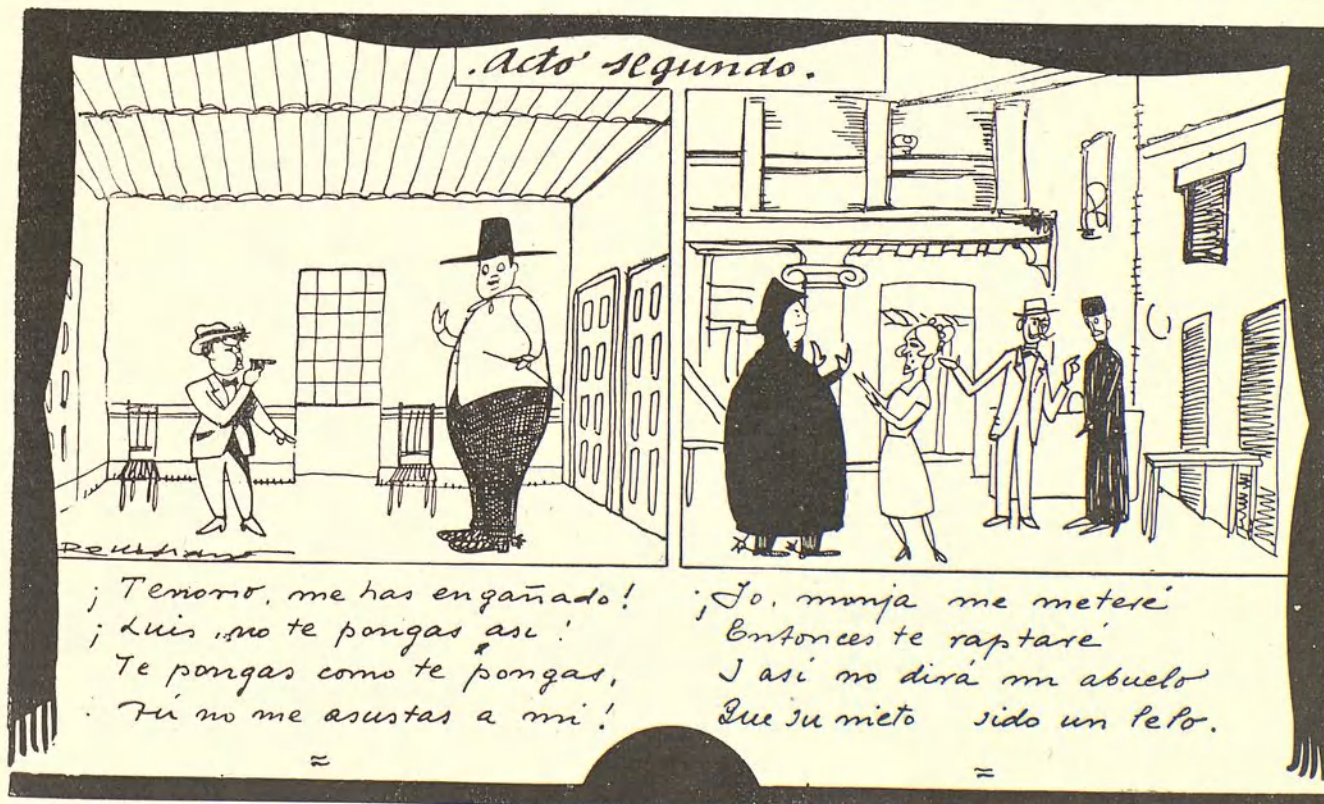 .Acto segundo.
¡Tenorio, me has engañado!
¡Luis, no te pongas así!
Te pongas como te pongas,
Tú no me asustas a mi!
¡Yo, monja me meteré
Entonces te raptaré
Y así no dirá mi abuelo
Que su nieto sido un lelo.